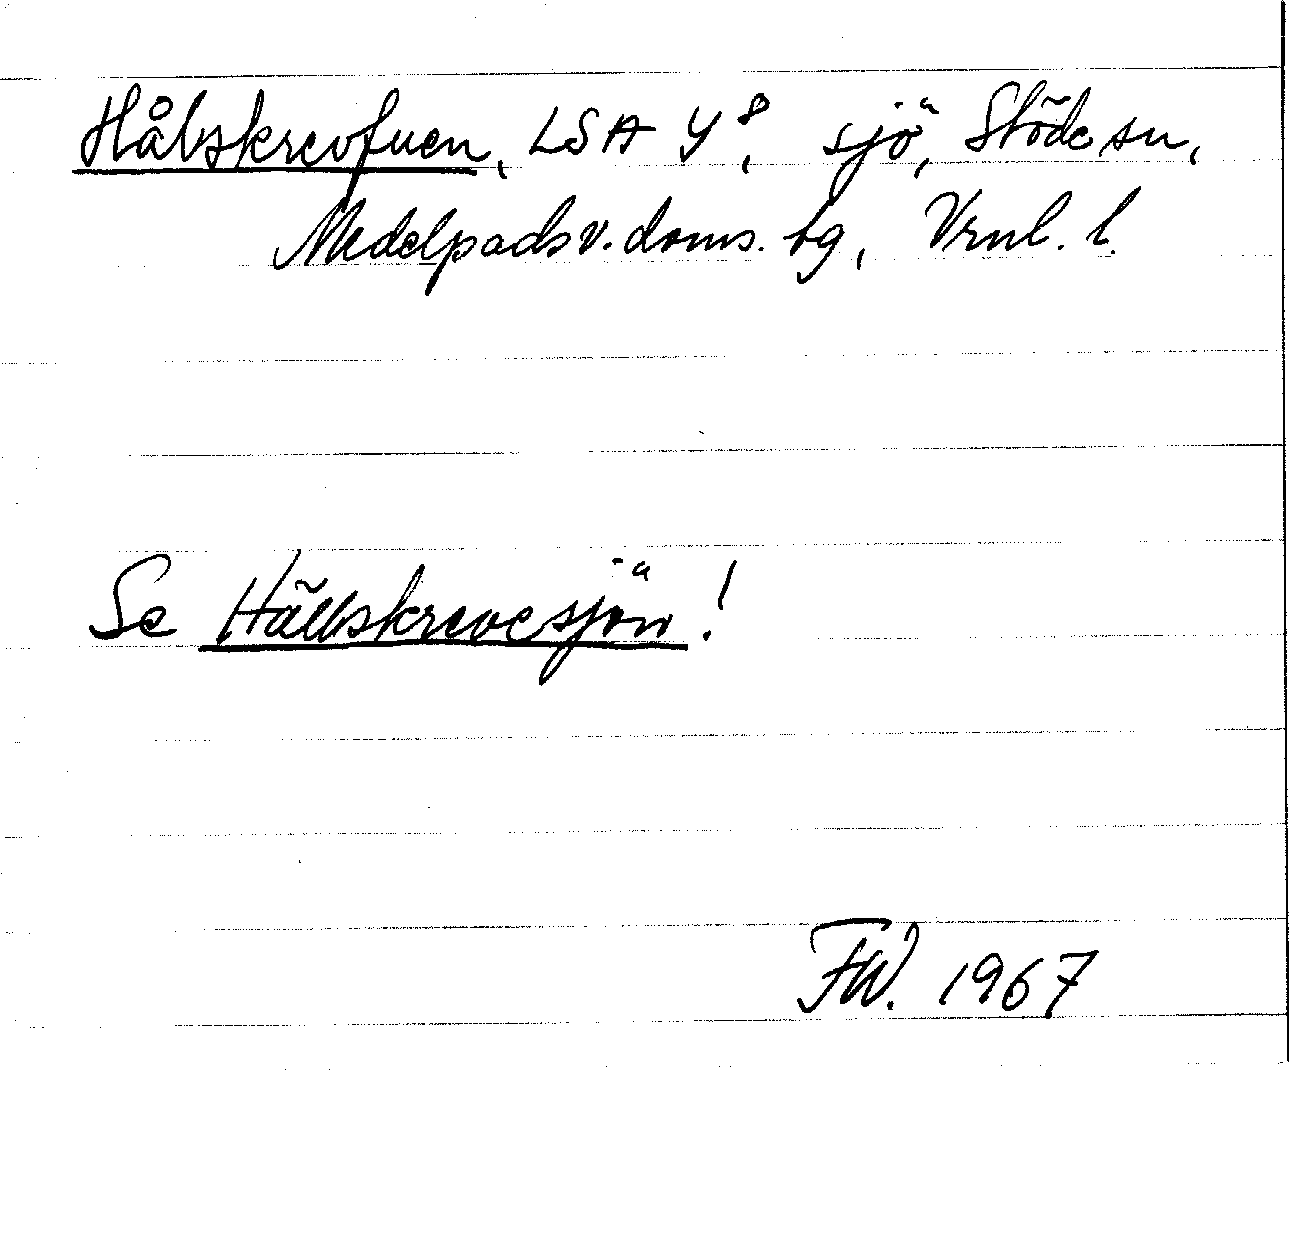 Hålskrevfuen, LSA Y⁸, sjö, Stöde sn,
Medelpads v. doms. tg, Vrnl. l.
Se Hällskrevesjön!
FW. 1967